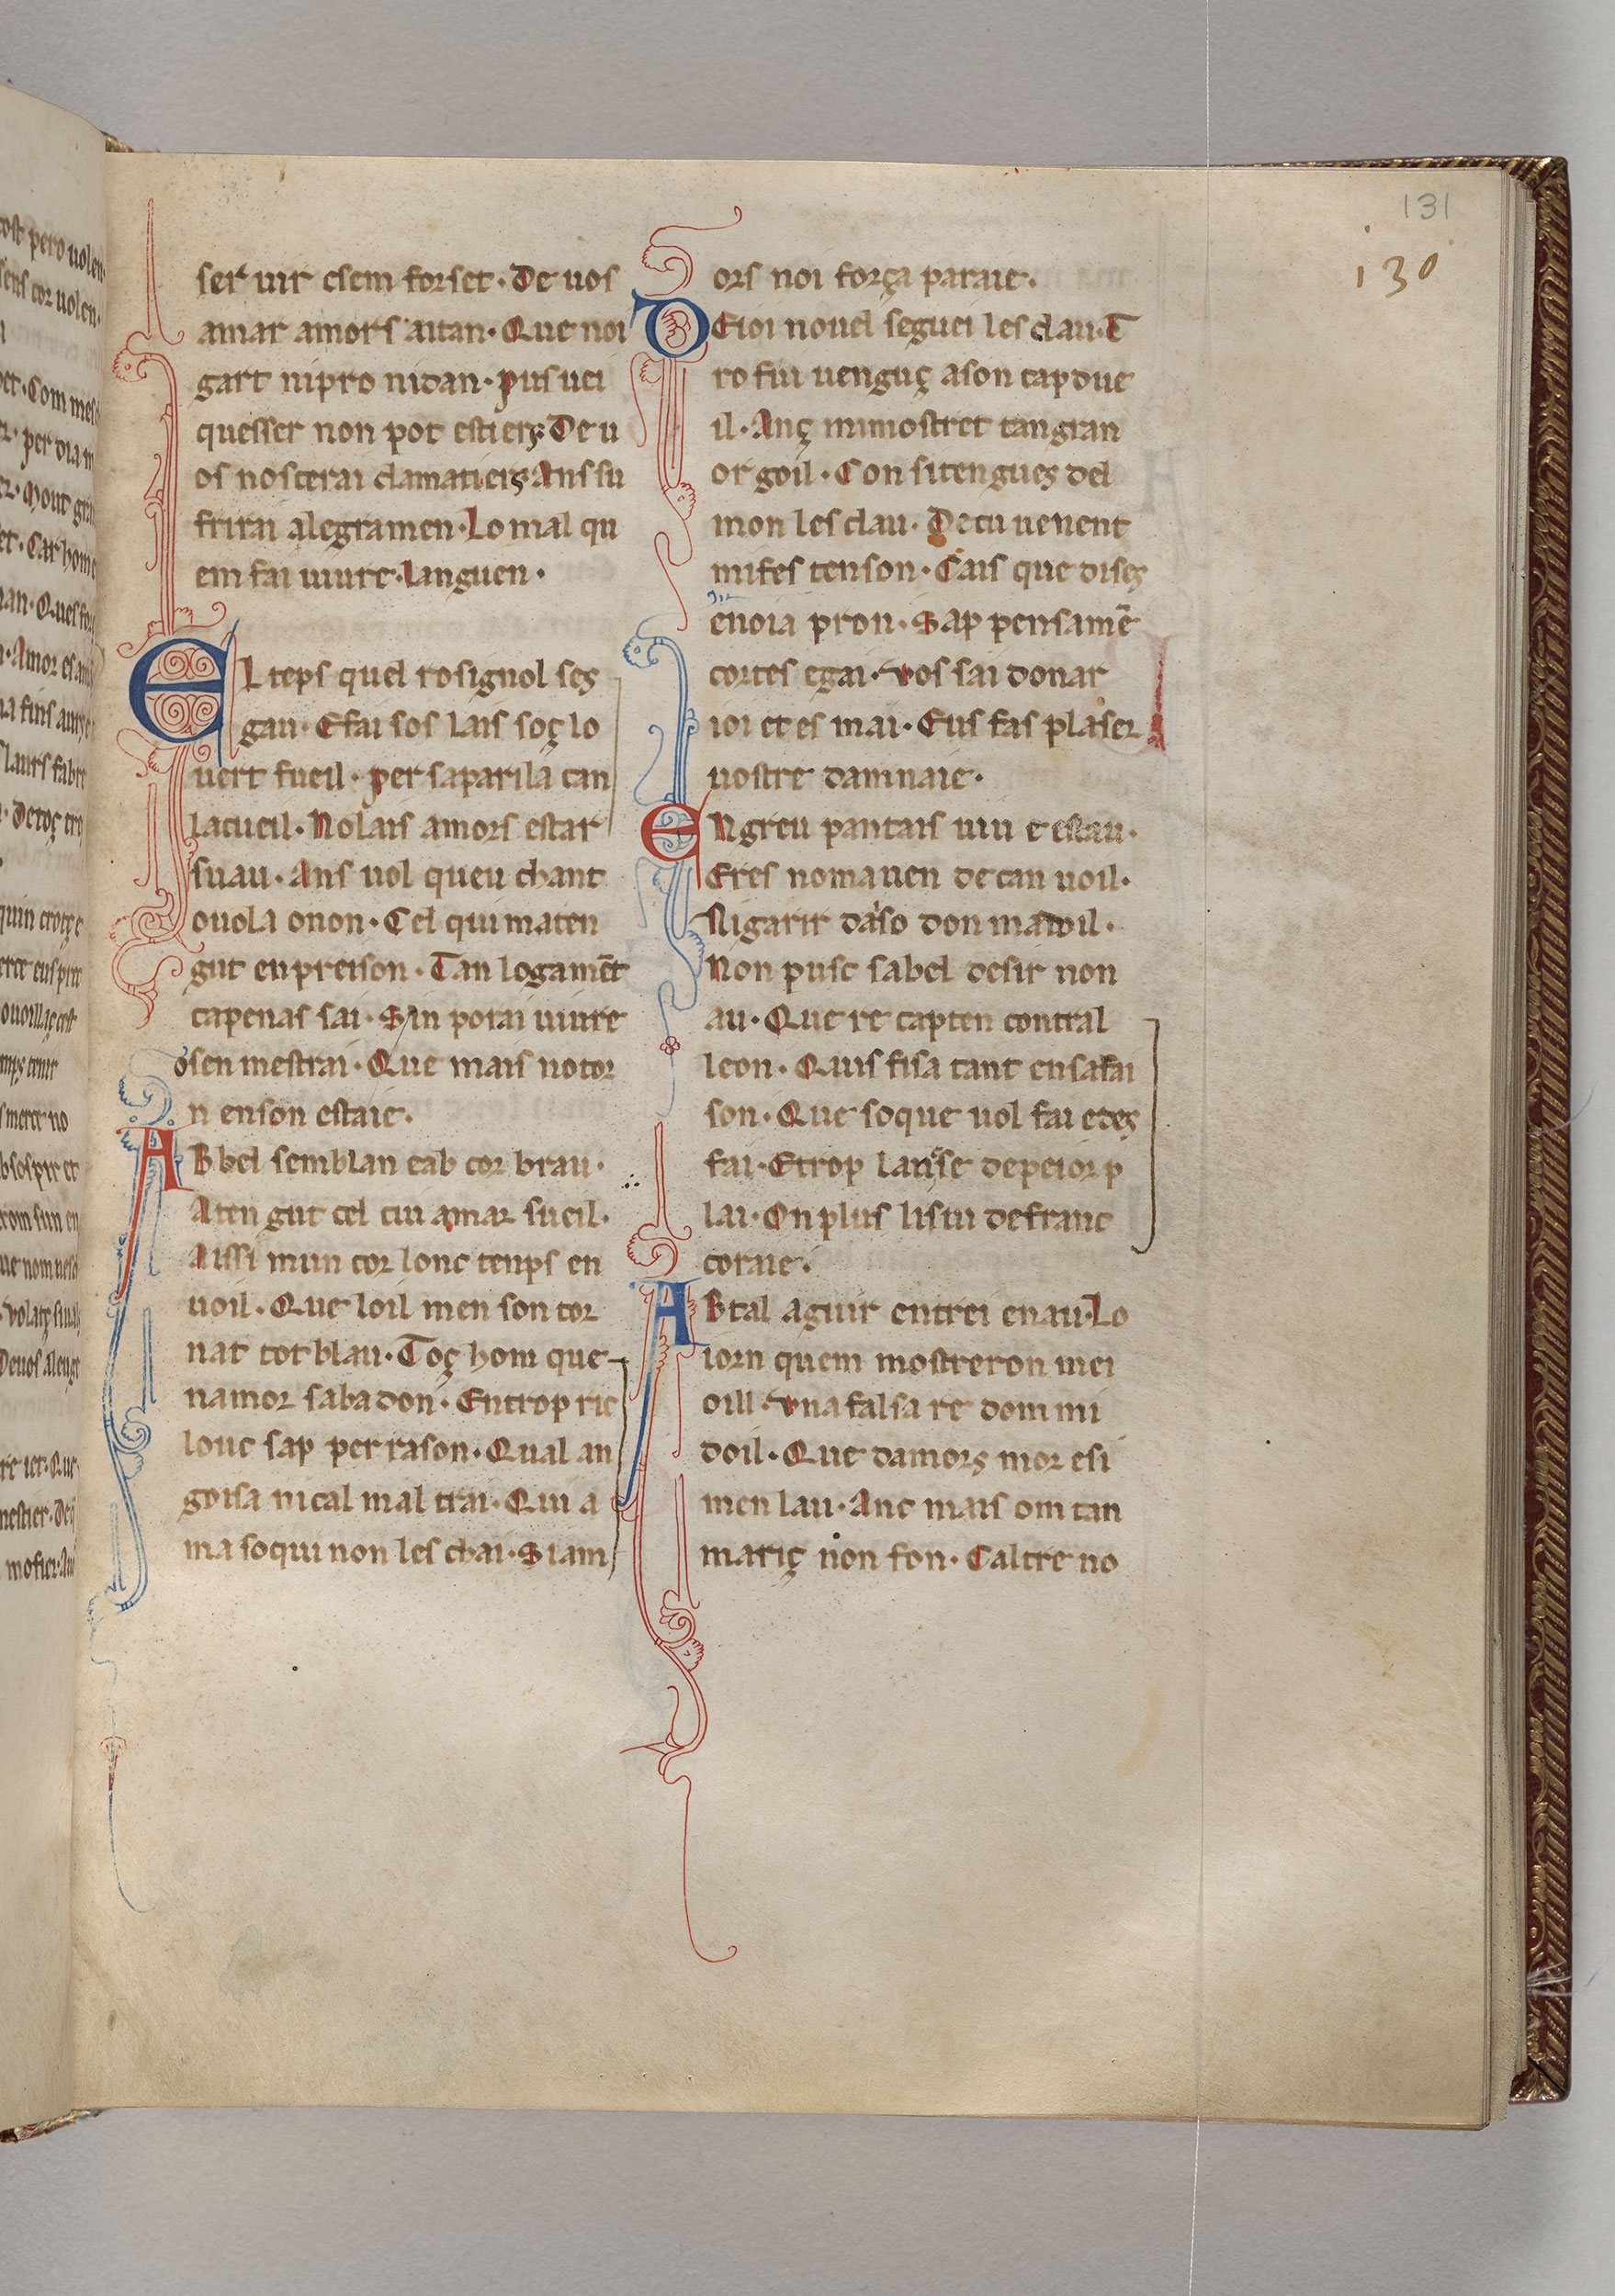 131
130
ser uir esem forset. De uos
amar amors aitan. Que noi
gart nipro nidan. pus uei
quesser non pot estiers. De u
os noscerai clamatiers. Ans su
frirai alegramen. Lo mal qu
em fai uiure. Languen.
EL teps quel rosignol ses
gau. E fai sos lais soç lo
uert fueil. per saparila can
lacueil. Nolais amors estar
suau. Ans uol queu chant
ouola onon. Cel qui maten
gut enpreison. Tan logamēt
capenas sai. Sin porai uiure
osen mestrai. Que mais notor
n enson estaie.
AB bel semblan eab cor brau.
Aten gut cel cui amar sueil.
Aissi mun cor lonc temps en
uoil. Que loil men son tor
nat tot blau. Toç hom que
namor sabadon. Entrop ric
louc sap per rason. Qual an
goisa ni cal mal trai. Qui a
ma soqui non les chai. Siam
ors noi força paraie.
DEioi nouel seguei les clau. E
ro fui uenguç ason capdue
il. Anç mimostret tangran
orgoil. Con sitengues del
mon les clau. De cu uenent
mifes tenson. Cais que dises
enoia pron. Sap pensamē
cortes egai. Vos sai donar
ioi et es mai. Eus fas plaser
uostre damnaie.
ENgreu pantais uiu e estau.
Eres nomauen de can uoil.
Nigarir daso don
Non pusc sabel desir non
au. Que re capten contral
leon. Quis fisa tant ensafai
son. Que soque uol fai etes
fai. Etrop depeior p
lai. On plus lisui defranc
coraie.
AB tal aguir entrei enau. Lo
iorn quem mostreron mei
oill. Vna falsa re dom mi
doil. Que damors mor esi
men lau. Anc mais om tan
mariç non fon. Caltre no